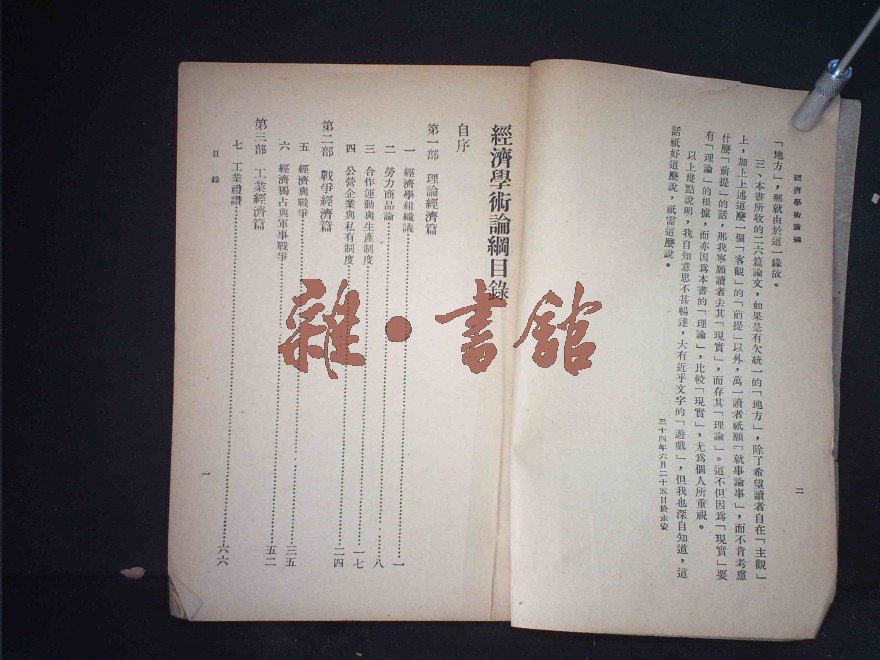 經濟學術論綱
二
「地方」，那就由於這一緣故。
三、本書所收的二六篇論文，如果是有欠統一的「地方」，除了希望讀者自在「主觀」
上，加上上述這麼一個「客觀」的「前提」以外，萬一讀者祇願「就事論事」，而不肯考慮
什麼「前提」的話，那我寧願讀者去其「現實」，而存其「理論」。這不但因爲「現實」要
有「理論」的根據，而亦因爲本書的「理論」，比較「現實」，尤爲個人所重視。
以上幾點說明，我自知意思不甚暢達，大有近乎文字的「遊戲」，但我也深自知道，這
話祇好這麼說，祇需這麼說。
三十四年六月二十五日於永安
經濟學術論綱目錄
自序
第一部 理論經濟篇
一 經濟學組織議……一
二 勞力商品論……八
三 合作運動與生產制度……一七
四 公營企業與私有制度……二四
第二部 戰爭經濟篇
五 經濟與戰爭……三五
六 經濟獨占與軍事戰爭……五二
第三部 工業經濟篇
七 工業禮讚……六六
目錄
一
雜·書館